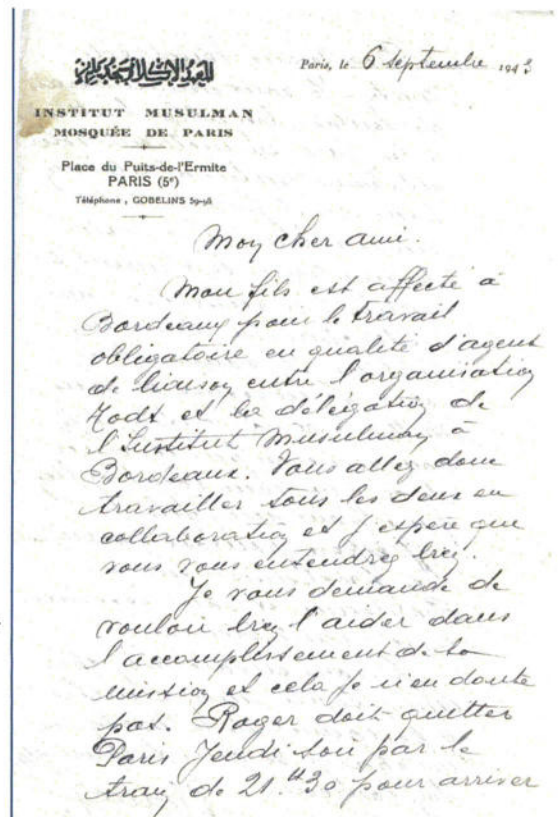 Paris, le 6 Septembre 1943
INSTITUT MUSULMAN
MOSQUÉE DE PARIS
Place du Puits-de-l'Ermite
PARIS (5e)
Téléphone : GOBELINS
Mon cher ami.
Mon fils est affecté à
Bordeaux pour le travail
obligatoire en qualité d'agent
de liaison entre l'organisation
Todt et la délégation de
l'Institut Musulman à
Bordeaux. Vous allez donc
travailler tous les deux en
collaboration et j'espère que
vous vous entendrez bien.
Je vous demande de
vouloir bien l'aider dans
l'accomplissement de sa
mission et cela je n'en doute
pas. Roger doit quitter
Paris Jeudi soir par le
train de 21.H30 pour arriver